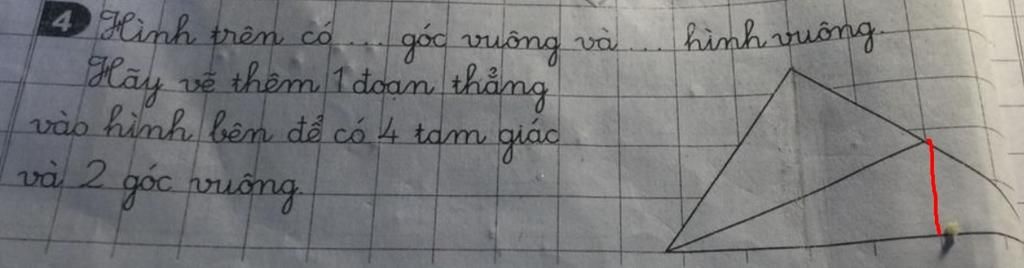 4 Hình trên có ... góc vuông và ... hình vuông.
Hãy vẽ thêm 1 đoạn thẳng
vào hình bên để có 4 tam giác
và 2 góc vuông.